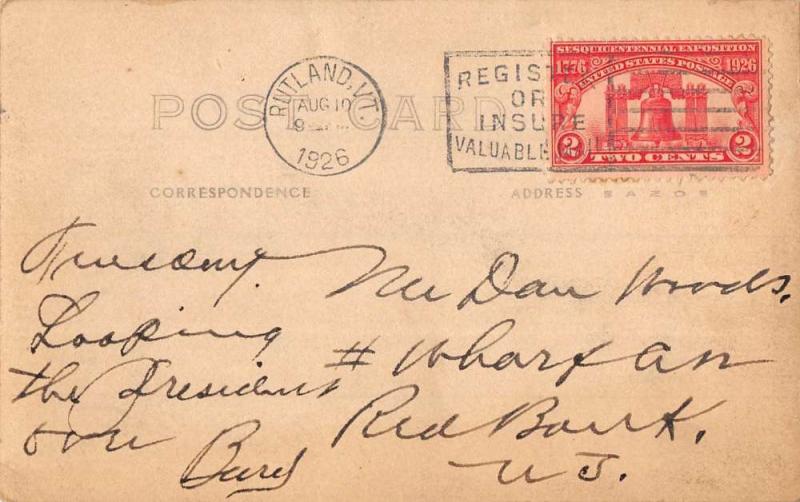 POST CARD
RUTLAND, VT.
AUG 10
9
1926
REGISTER
OR
INSURE
VALUABLE MAIL
SESQUICENTENNIAL EXPOSITION
1776 1926
UNITED STATES POSTAGE
2 TWO CENTS 2
CORRESPONDENCE
ADDRESS
SAZOS
Looking
the President
over
Mr Dan Woods.
# Wharf
Red Bank.
N J.